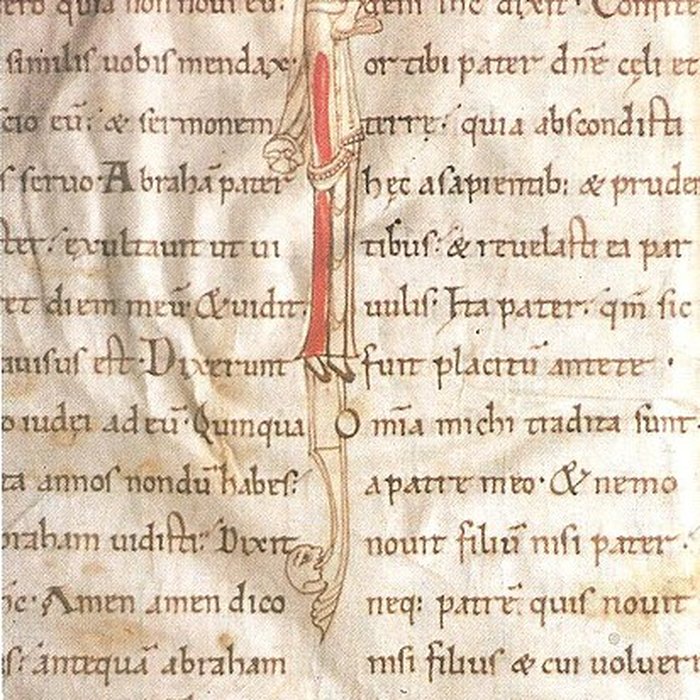 quia non noui eu͛.
similis uobis mendax·
scio eū: & sermonem
seruo· Abrahā pater
exultauit ut ui
et diem meū & uidit·
gauisus est· Dixerunt
iudęi ad eū· Quinqua
ta annos nondū habes:
abraham uidisti: Dixit
Amen amen dico
antequā abraham
dixit· Confite
or tibi pater dnē cęli et
terrę· quia abscondisti
hęc a sapientib: & pruden
tibus· & reuelasti ea par
uulis· Ita pater· qm̄ sic
fuit placitū ante te·
Omīa michi tradita sunt·
a patre meo· & nemo
nouit filiū nisi pater·
neq: patrē quis nouit
nisi filius & cui uoluerit